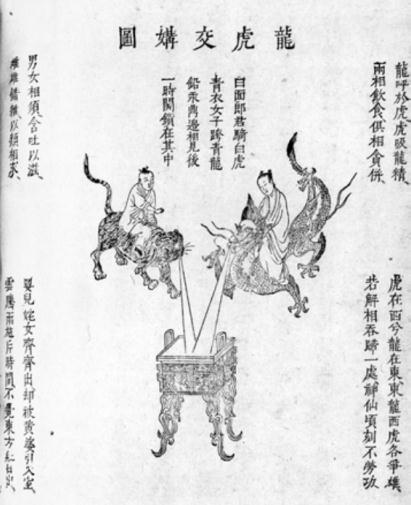 龍虎交媾圖
龍呼於虎虎吸龍精
兩相飲食俱相貪併
白面郎君騎白虎
青衣女子跨青龍
鉛汞鼎邊相見後
一時關鎖在其中
男女相須含吐以滋
雌雄錯雜以類相求
虎在西兮龍在東東龍西虎各爭雄
若解相吞歸一處神仙頃刻不勞功
嬰兒姹女齊齊出却被黃婆引入室
雲騰雨施片時間不覺東方紅日